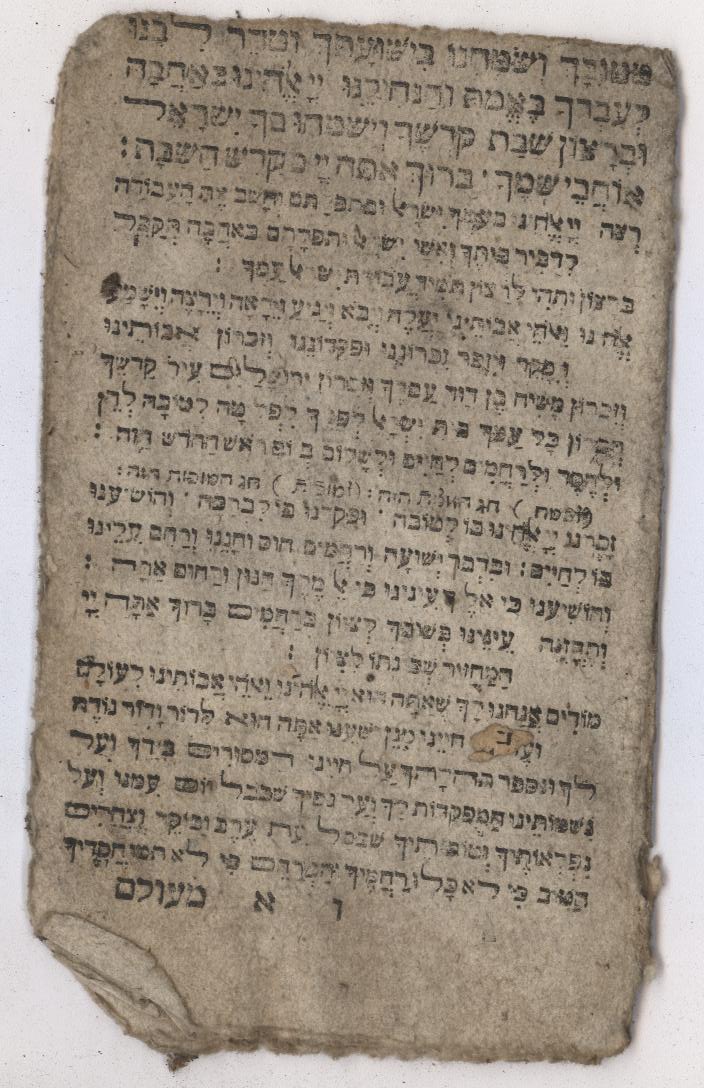 מטובך ושמחנו בישועתך וטהר לבנו
לעבדך באמת והנחילנו יי אלהינו באהבה
וברצון שבת קדשך וישמחו בך ישראל
אוהבי שמך׃ ברוך אתה יי מקדש השבת׃
רצה יי אלהינו בעמך ישראל והשב את העבודה
לדביר ביתך ואשי ישראל ותפלתם באהבה תקבל
ברצון ותהי לרצון תמיד עבודת ישראל עמך׃
יעלה ויבא ויגיע ויראה וירצה וישמע
ויפקד ויזכר זכרוננו ופקדוננו וזכרון אבותינו
וזכרון משיח בן דוד עבדך וזכרון ירושלים עיר קדשך
וזכרון כל עמך בית ישראל לפניך לפליטה לטובה לחן
ולחסד ולרחמים לחיים ולשלום ביום ראש החדש הזה׃
חג המצות הזה׃ (ובסוכות) חג הסוכות הזה׃
זכרנו יי אלהינו בו לטובה׃ ופקדנו בו לברכה׃ והושיענו
בו לחיים׃ ובדבר ישועה ורחמים חוס וחננו ורחם עלינו
והושיענו כי אליך עינינו כי אל מלך חנון ורחום אתה׃
ותחזנה עינינו בשובך לציון ברחמים ברוך אתה יי
המחזיר שכינתו לציון׃
מודים אנחנו לך שאתה הוא יי אלהינו ואלהי אבותינו לעולם
ועד חיינו מגן ישענו אתה הוא לדור ודור נודה
לך ונספר תהלתך על חיינו המסורים בידך ועל
נשמותינו הפקודות לך ועל נסיך שבכל יום עמנו ועל
נפלאותיך וטובותיך שבכל עת ערב ובוקר וצהרים
הטוב כי לא כלו רחמיך המרחם כי לא תמו חסדיך
ו א מעולם